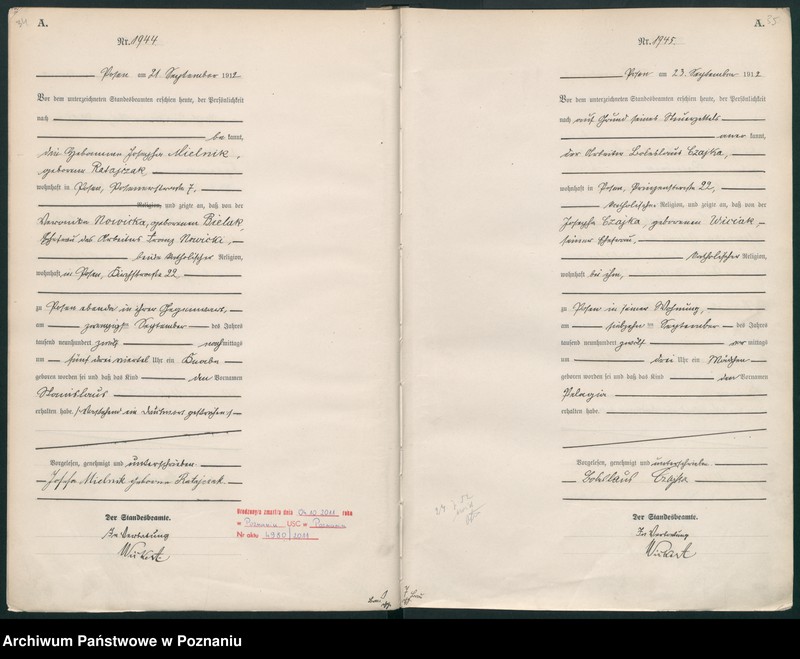 A.
Nr. 1944.
Posen am 21. September 1912
Vor dem unterzeichneten Standesbeamten erschien heute, der Persönlichkeit
nach
be kannt,
die Hebamme Josepha Mielnik,
geborene Ratajczak
wohnhaft in Posen, Posenerstrasse 7,
Religion, und zeigte an, daß von der
Veronika Nowicka, geborenen Bielak,
Ehefrau des Arbeiters Franz Nowicki,
beide katholischer Religion,
wohnhaft in Posen, Kirchstrasse 22
zu Posen ebenda in ihrer Gegenwart,
am zwanzigsten September des Jahres
tausend neunhundert zwölf nachmittags
um fünf drei viertel Uhr ein Knabe
geboren worden sei und daß das Kind den Vornamen
Stanislaus
erhalten habe. (Vorstehend ein Druckwort gestrichen.)
Vorgelesen, genehmigt und unterschrieben.
Josefa Mielnik geborene Ratajczak.
Der Standesbeamte.
In Vertretung
Urodzony/a zmarł/a dnia 04.10.2011 roku
w Poznaniu USC w Poznaniu
Nr aktu 4980/2011
A. 85
Nr. 1945.
Posen am 23. September 1912
Vor dem unterzeichneten Standesbeamten erschien heute, der Persönlichkeit
nach auf Grund seines Steuerzettels
aner kannt,
der Arbeiter Boleslaus Czajka,
wohnhaft in Posen, 22,
katholischer Religion, und zeigte an, daß von der
Josepha Czajka, geborenen Wiciak,
seiner Ehefrau,
katholischer Religion,
wohnhaft bei ihm,
zu Posen in seiner Wohnung,
am siebzehnten September des Jahres
tausend neunhundert zwölf vormittags
um drei Uhr ein Mädchen
geboren worden sei und daß das Kind den Vornamen
Pelagia
erhalten habe.
Vorgelesen, genehmigt und unterschrieben.
Boleslaus Czajka
Der Standesbeamte.
In Vertretung
Archiwum Państwowe w Poznaniu